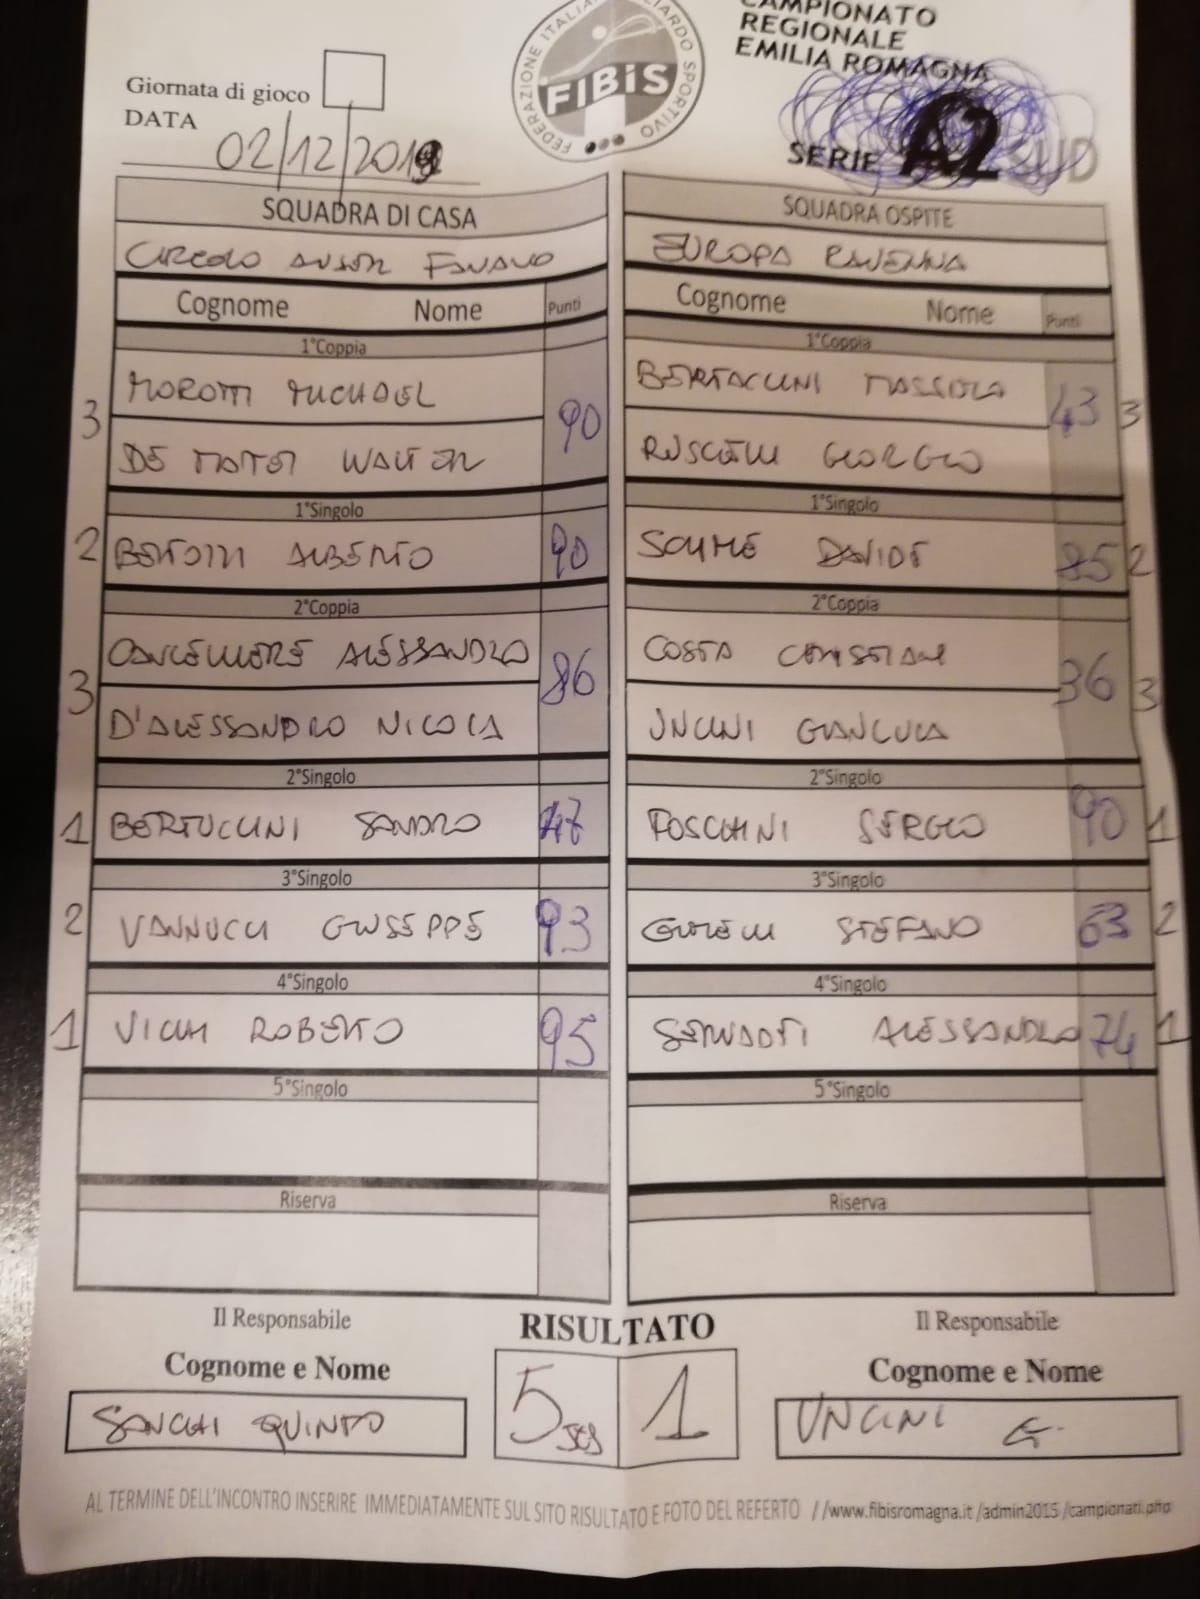 CAMPIONATO
REGIONALE
EMILIA ROMAGNA
SERIE A2 SUD
FEDERAZIONE ITALIANA BILIARDO SPORTIVO
FIBiS
Giornata di gioco
DATA
02/12/2019
SQUADRA DI CASA SQUADRA OSPITE
CIRCOLO EUROPA RAVENNA
Cognome Nome Punti Cognome Nome Punti
1°Coppia 1°Coppia
3 MOROTTI MICHAEL 90 BERTACCINI 43 3
DE MATTEI WALTER RUSCELLI GIORGIO
1°Singolo 1°Singolo
2 ALBERTO 90 DAVIDE 85 2
2°Coppia 2°Coppia
3 CANCELLIERE ALESSANDRO 86 COSTA CHRISTIAN 36 3
D'ALESSANDRO NICOLA UNCINI GIANLUCA
2°Singolo 2°Singolo
1 BERTUCCINI SANDRO 47 FOSCHINI SERGIO 90 1
3°Singolo 3°Singolo
2 VANNUCCI GIUSEPPE 93 STEFANO 63 2
4°Singolo 4°Singolo
1 VICHI ROBERTO 95 SERVADEI ALESSANDRO 74 1
5°Singolo 5°Singolo
Riserva Riserva
Il Responsabile RISULTATO Il Responsabile
Cognome e Nome Cognome e Nome
SANCHI QUINTO 5 1 UNCINI G.
AL TERMINE DELL'INCONTRO INSERIRE IMMEDIATAMENTE SUL SITO RISULTATO E FOTO DEL REFERTO //www.fibisromagna.it /admin2015 /campionati.php